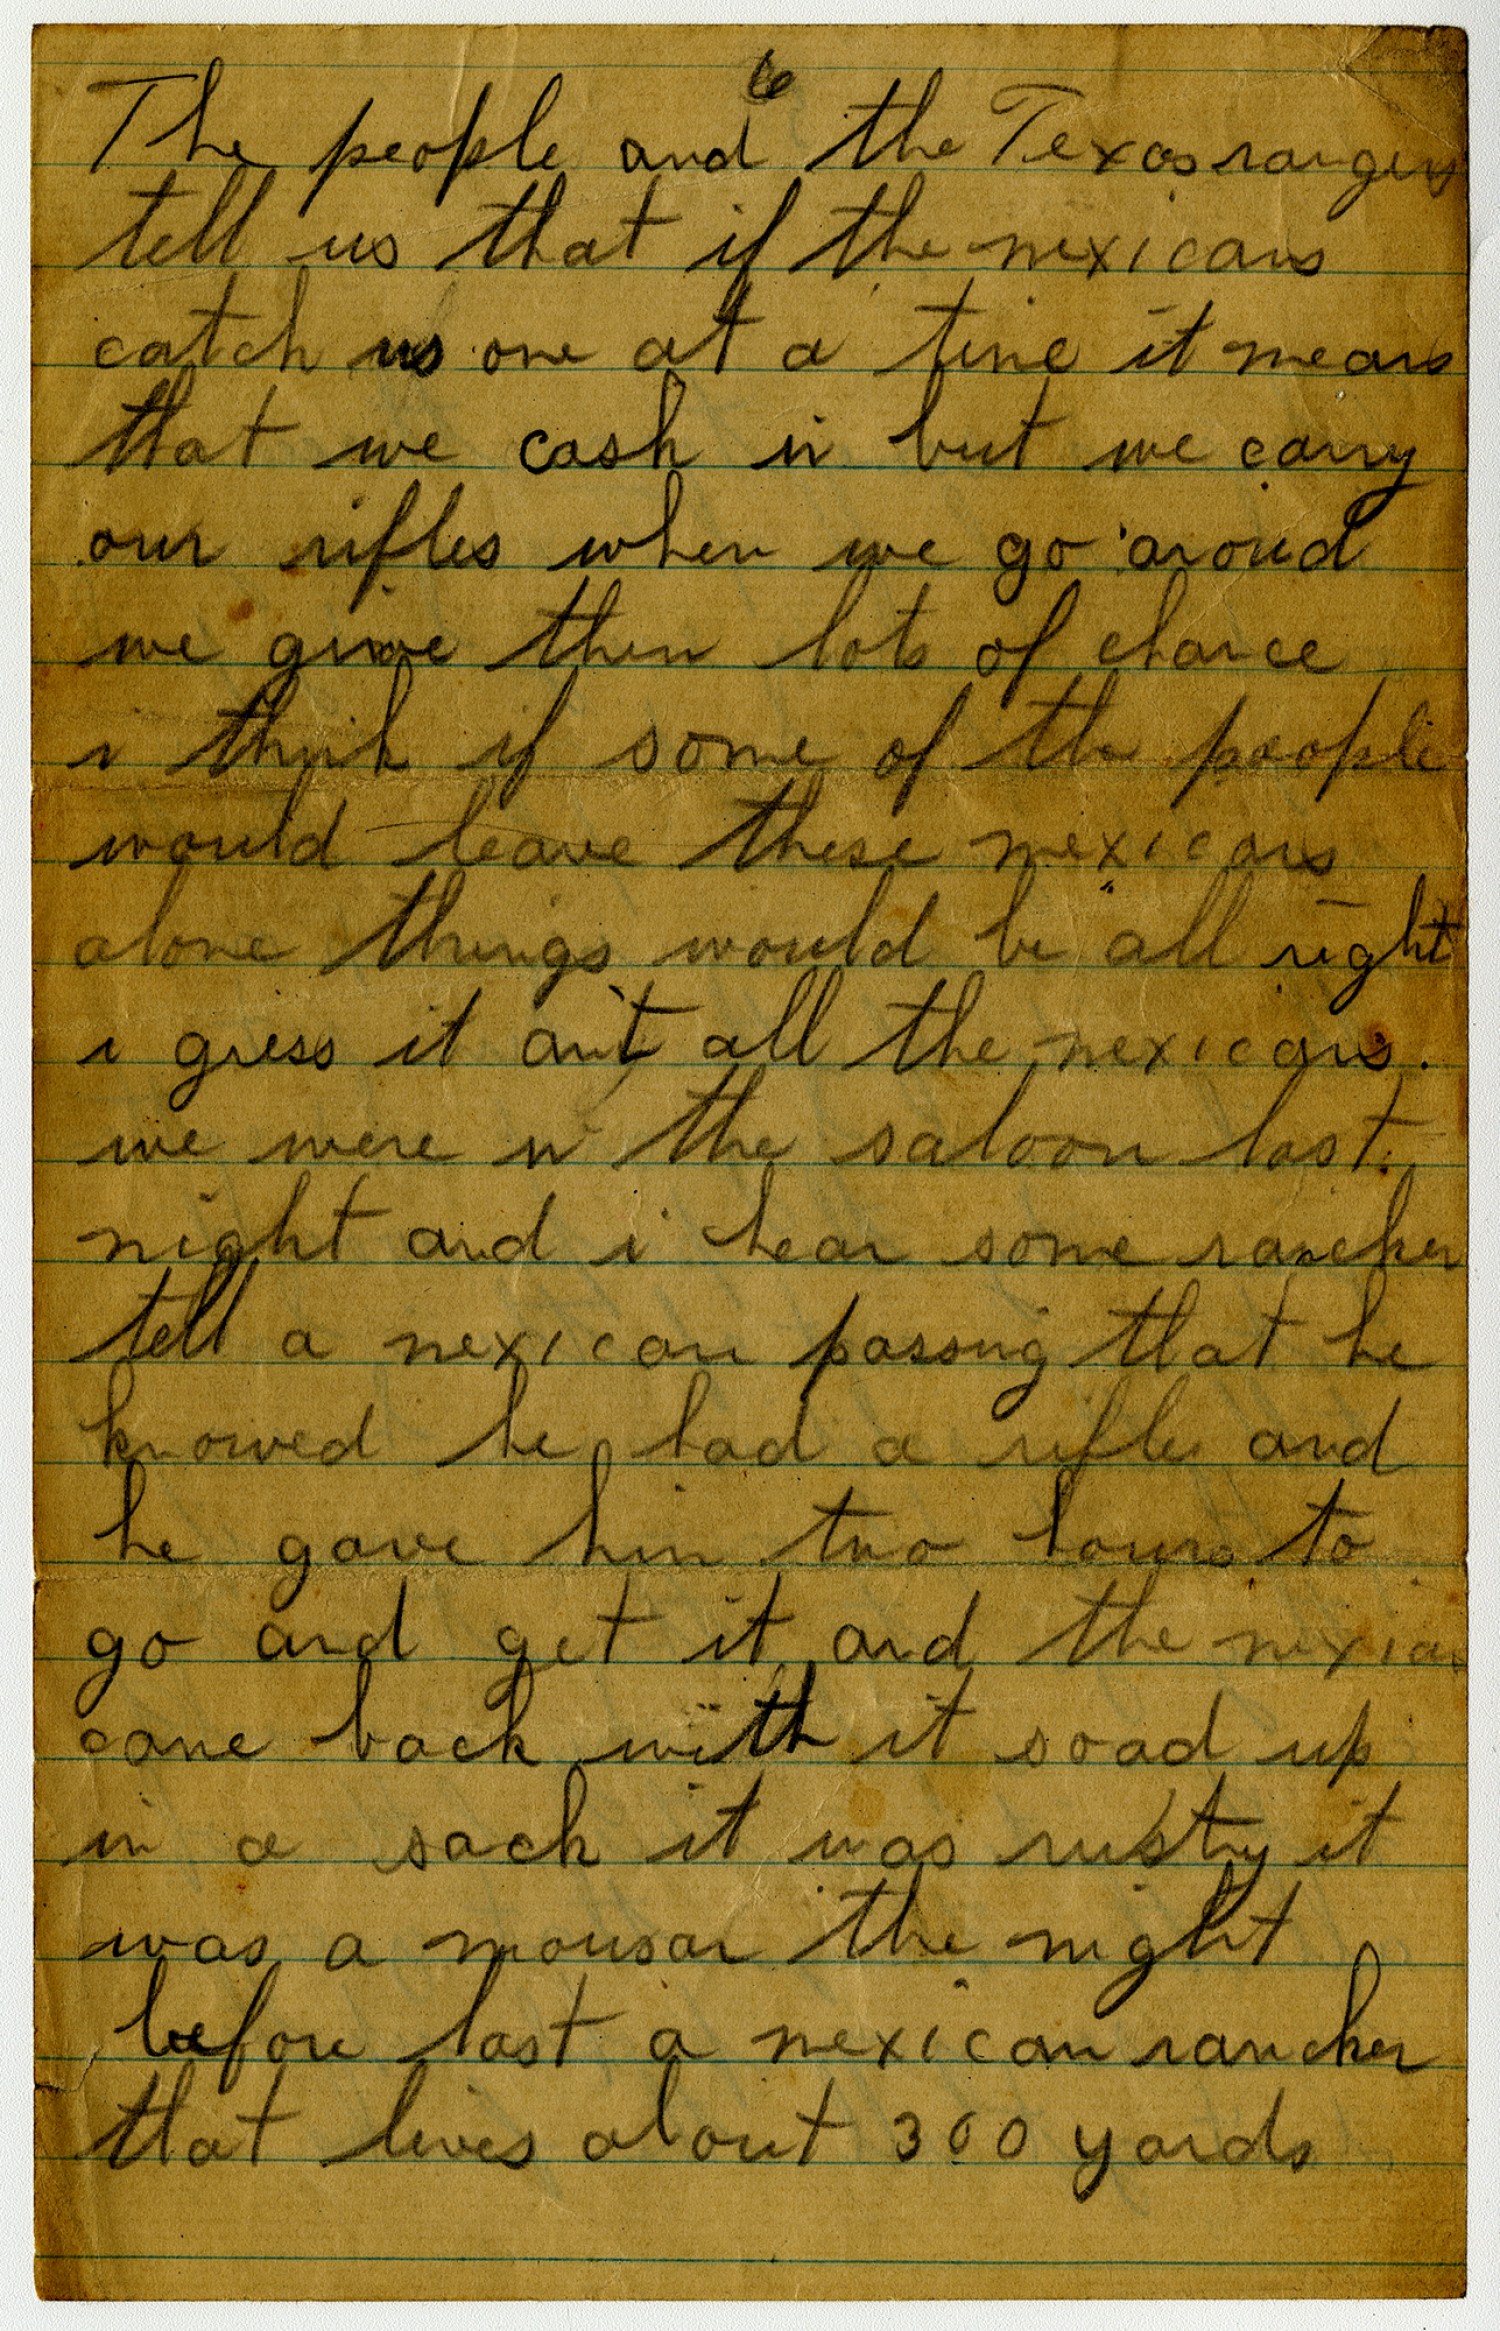 6
The people and the Texas rangers
tell us that if the mexicans
catch us one at a time it means
that we cash in but we carry
our rifles when we go aroud
we give them lots of chance
i think if some of the people
would leave these mexicans
alone things would be all right
i gess it ant all the mexicans.
we were in the saloon last
night and i hear some rancher
tell a mexican passing that he
knowed he had a rifle and
he gave him two hours to
go and get it and the mexican
came back with it soad up
in a sack it was rusty it
was a mousar the night
before last a mexican rancher
that lives about 300 yards